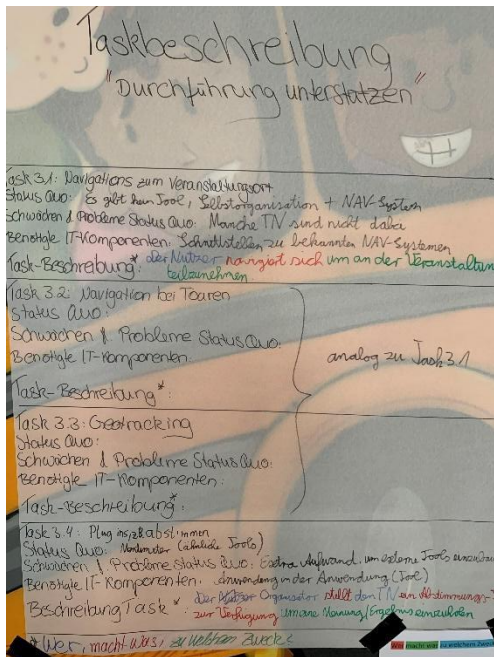 Taskbeschreibung
"Durchführung unterstützen"
Task 3.1: Navigations zum Veranstaltungsort
Status Quo: Es gibt kein Tool, Selbstorganisation + NAV-System
Schwächen & Probleme Status Quo: Manche TN sind nicht dabei
Benötigte IT-Komponenten: Schnittstellen zu bekannten NAV-Systemen
Task-Beschreibung*: der Nutzer navigiert sich um an der Veranstaltun
teilzunehmen
Task 3.2: Navigation bei Touren
Status Quo:
Schwächen & Probleme Status Quo:
Benötigte IT-Komponenten:
Task-Beschreibung*:
analog zu Task 3.1
Task 3.3: Geotracking
Status Quo:
Schwächen & Probleme Status Quo:
Benötigte IT-Komponenten:
Task-Beschreibung*:
Task 3.4: Plug ins, z.B. abstimmen
Status Quo: Vorhanden (ähnliche Tools)
Schwächen & Probleme Status Quo: Extra Aufwand, um externe Tools
Benötigte IT-Komponenten: Anwendung in der Anwendung (Tool)
Beschreibung Task*: Der Organisator stellt den TN ein Abstimmungs-
zur Verfügung um eine Meinung/Ergebnis einzuholen
*Wer, macht was, zu welchem Zweck
Wer macht was zu welchem Zwec